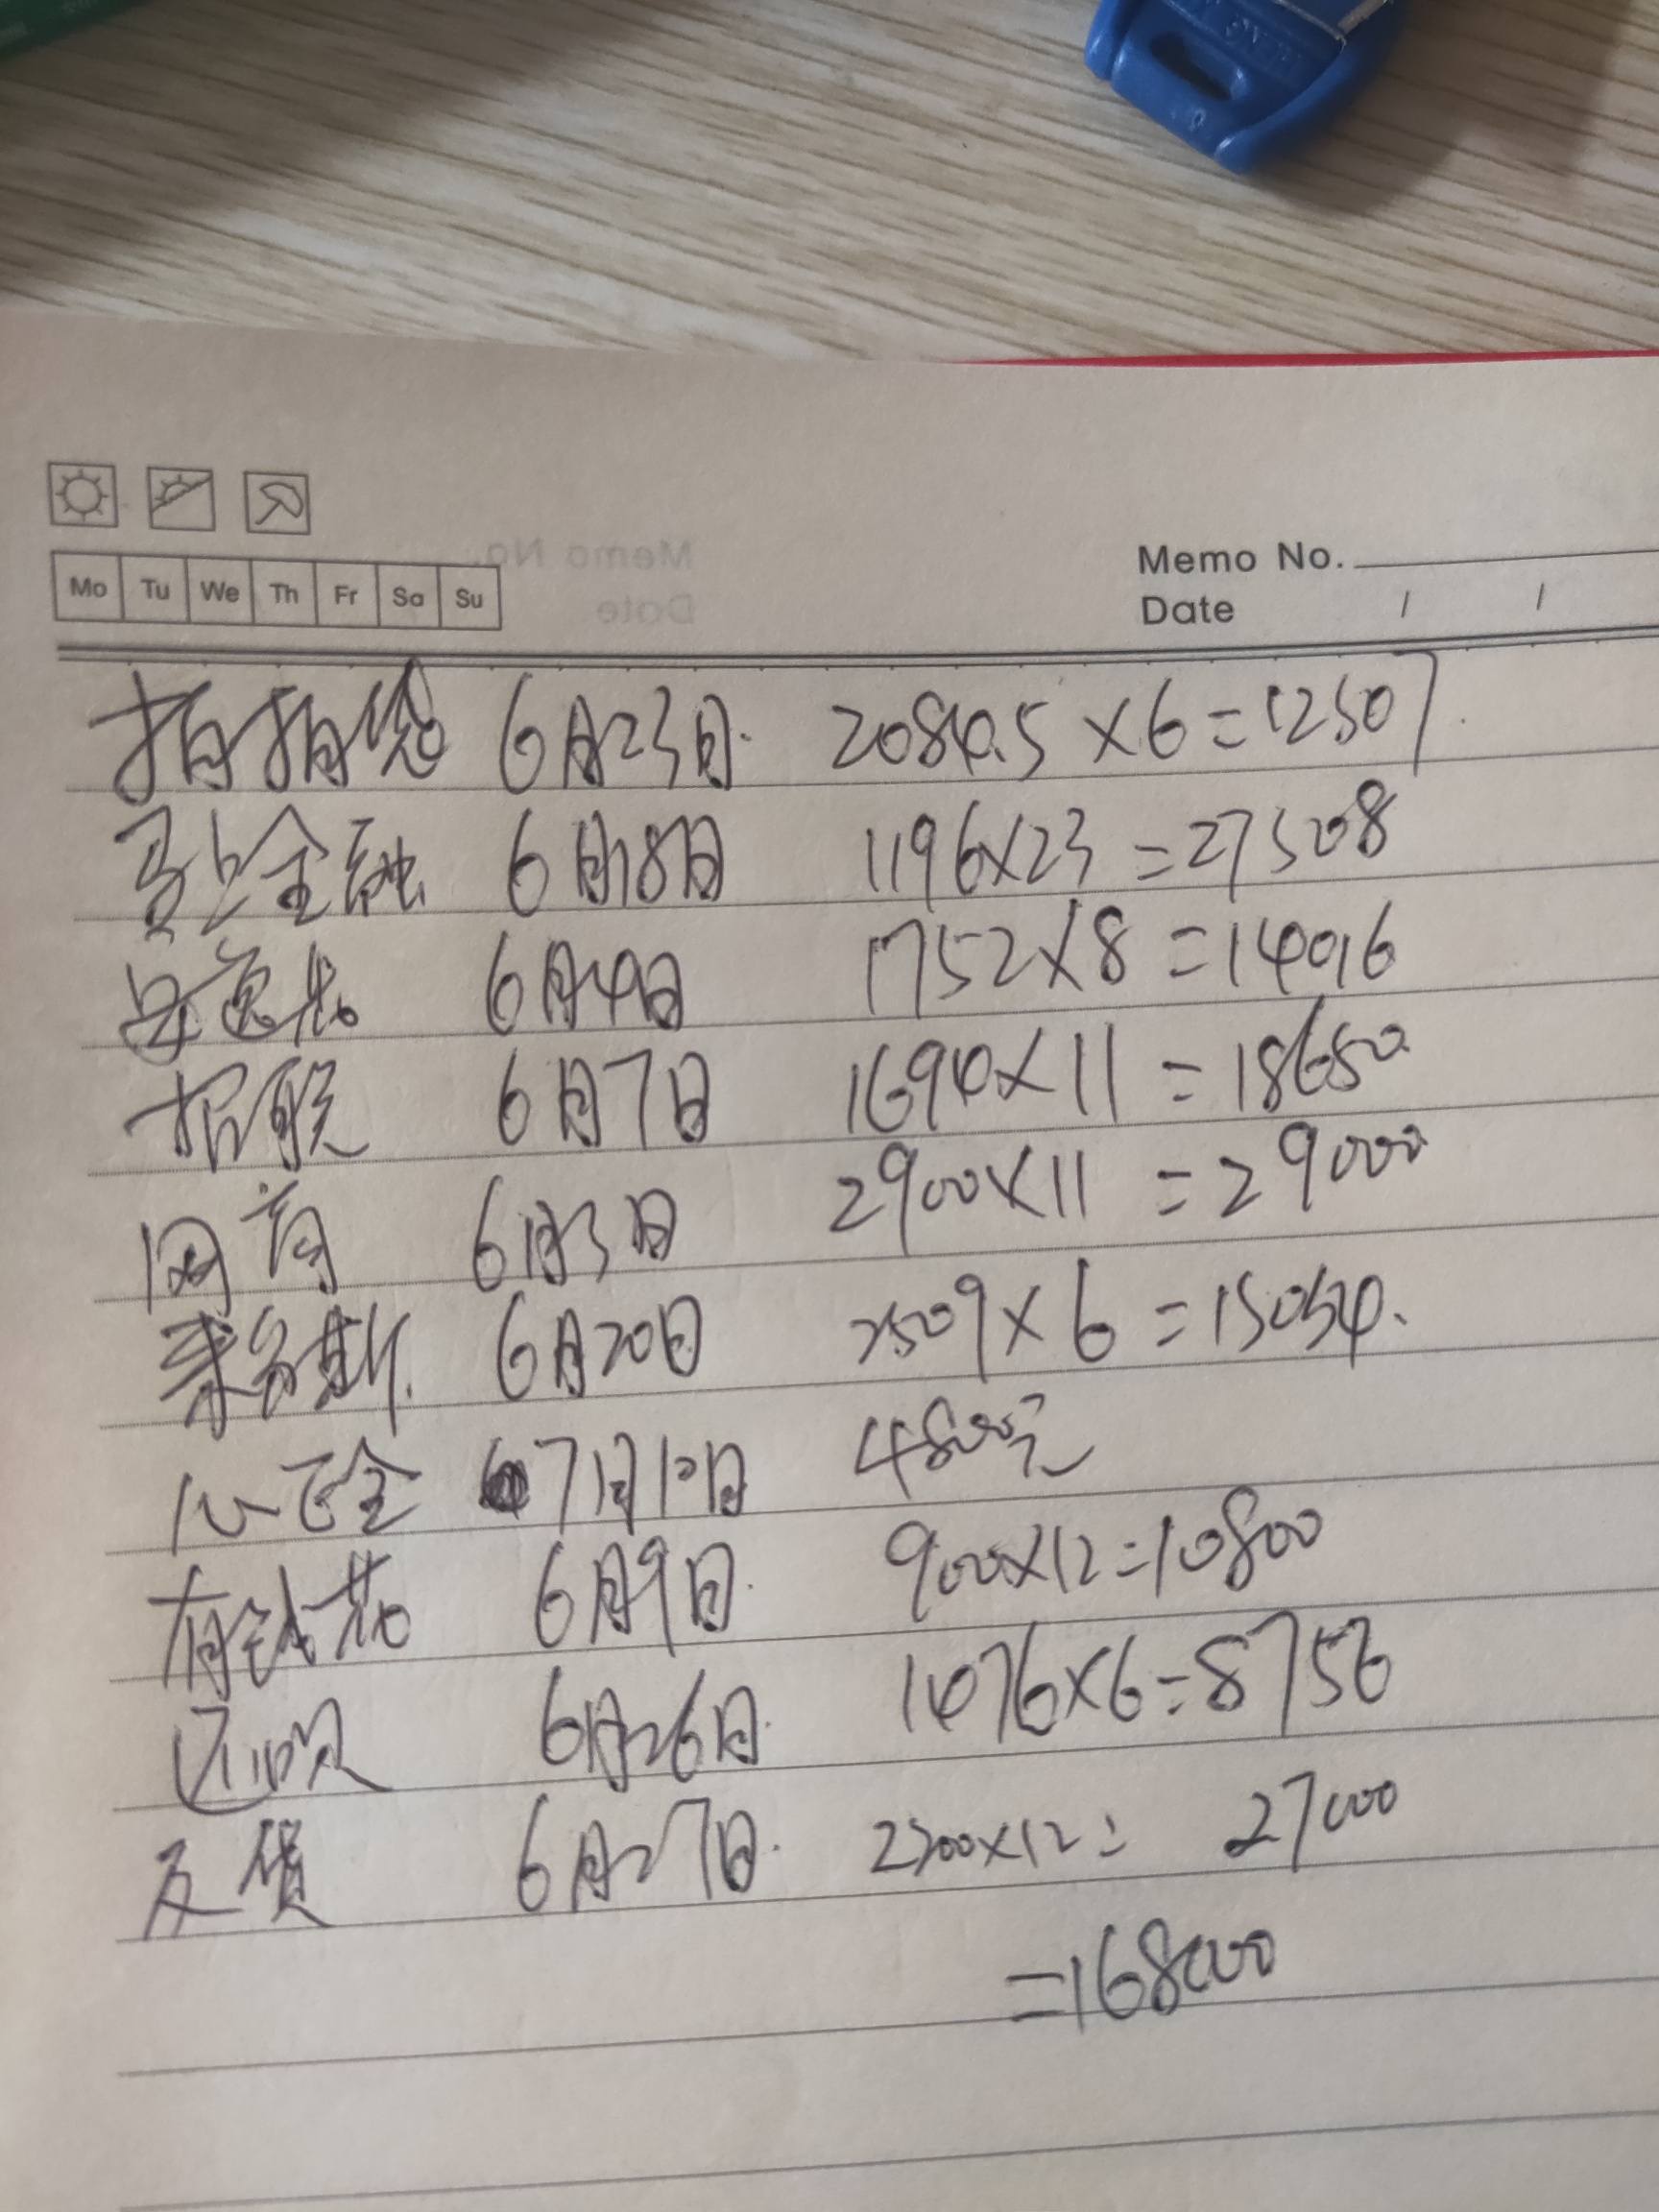 Memo No.
Date / /
Mo Tu We Th Fr Sa Su
拍拍贷 6月23日. 2084.5×6=12507.
马上金融 6月18日 1196×23=27508
6月4日 1752×8=14016
招联 6月7日 1694×11=18650
网商 6月3日 2900×11=29000
6月20日 2509×6=15054.
7月10日 4800元
有钱花 6月9日. 900×12=10800
6月26日. 1476×6=8756
6月27日. 2300×12= 27000
=168000